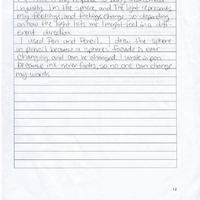 inequality. I'm the sphere, and the light represents
my feelings, and feelings change, so depending
on how the light hits me I might feel in a diff-
erent direction.
I used Pen and Pencil. I drew the sphere
in pencil because a sphere's facade is ever
changing and can be changed. I wrote in pen
because ink never fades, so no one can change
my words.
12